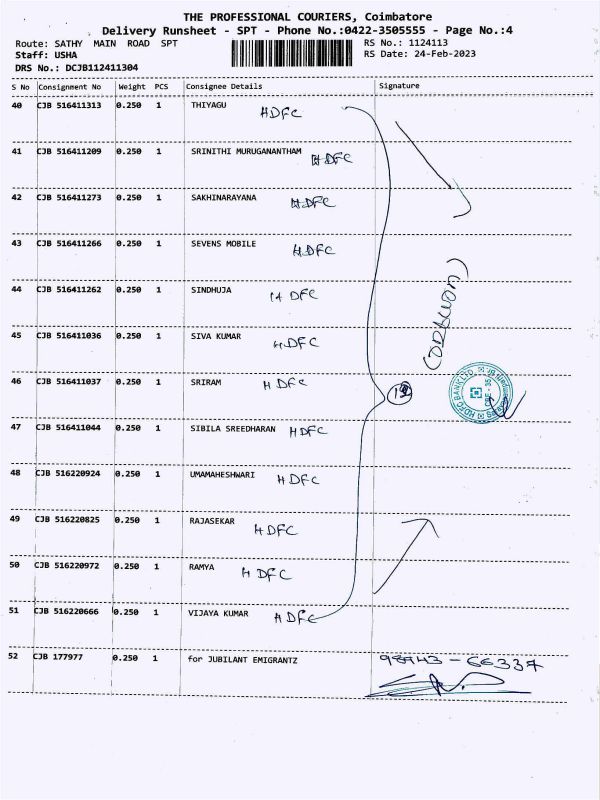 THE PROFESSIONAL COURIERS, Coimbatore
Delivery Runsheet - SPT - Phone No.:0422-3505555 - Page No.:4
Route: SATHY MAIN ROAD SPT RS No.: 1124113
Staff: USHA RS Date: 24-Feb-2023
DRS No.: DCJB112411304
S No Consignment No Weight PCS Consignee Details Signature
40 CJB 516411313 0.250 1 THIYAGU HDFC
41 CJB 516411209 0.250 1 SRINITHI MURUGANANTHAM HDFC
42 CJB 516411273 0.250 1 SAKHINARAYANA HDFC
43 CJB 516411266 0.250 1 SEVENS MOBILE HDFC
44 CJB 516411262 0.250 1 SINDHUJA HDFC
45 CJB 516411036 0.250 1 SIVA KUMAR HDFC
46 CJB 516411037 0.250 1 SRIRAM HDFC
HDFC BANK LTD
47 CJB 516411044 0.250 1 SIBILA SREEDHARAN HDFC
48 CJB 516220924 0.250 1 UMAMAHESHWARI HDFC
49 CJB 516220825 0.250 1 RAJASEKAR HDFC
50 CJB 516220972 0.250 1 RAMYA HDFC
51 CJB 516220666 0.250 1 VIJAYA KUMAR HDFC
52 CJB 177977 0.250 1 for JUBILANT EMIGRANTZ 98943-66337